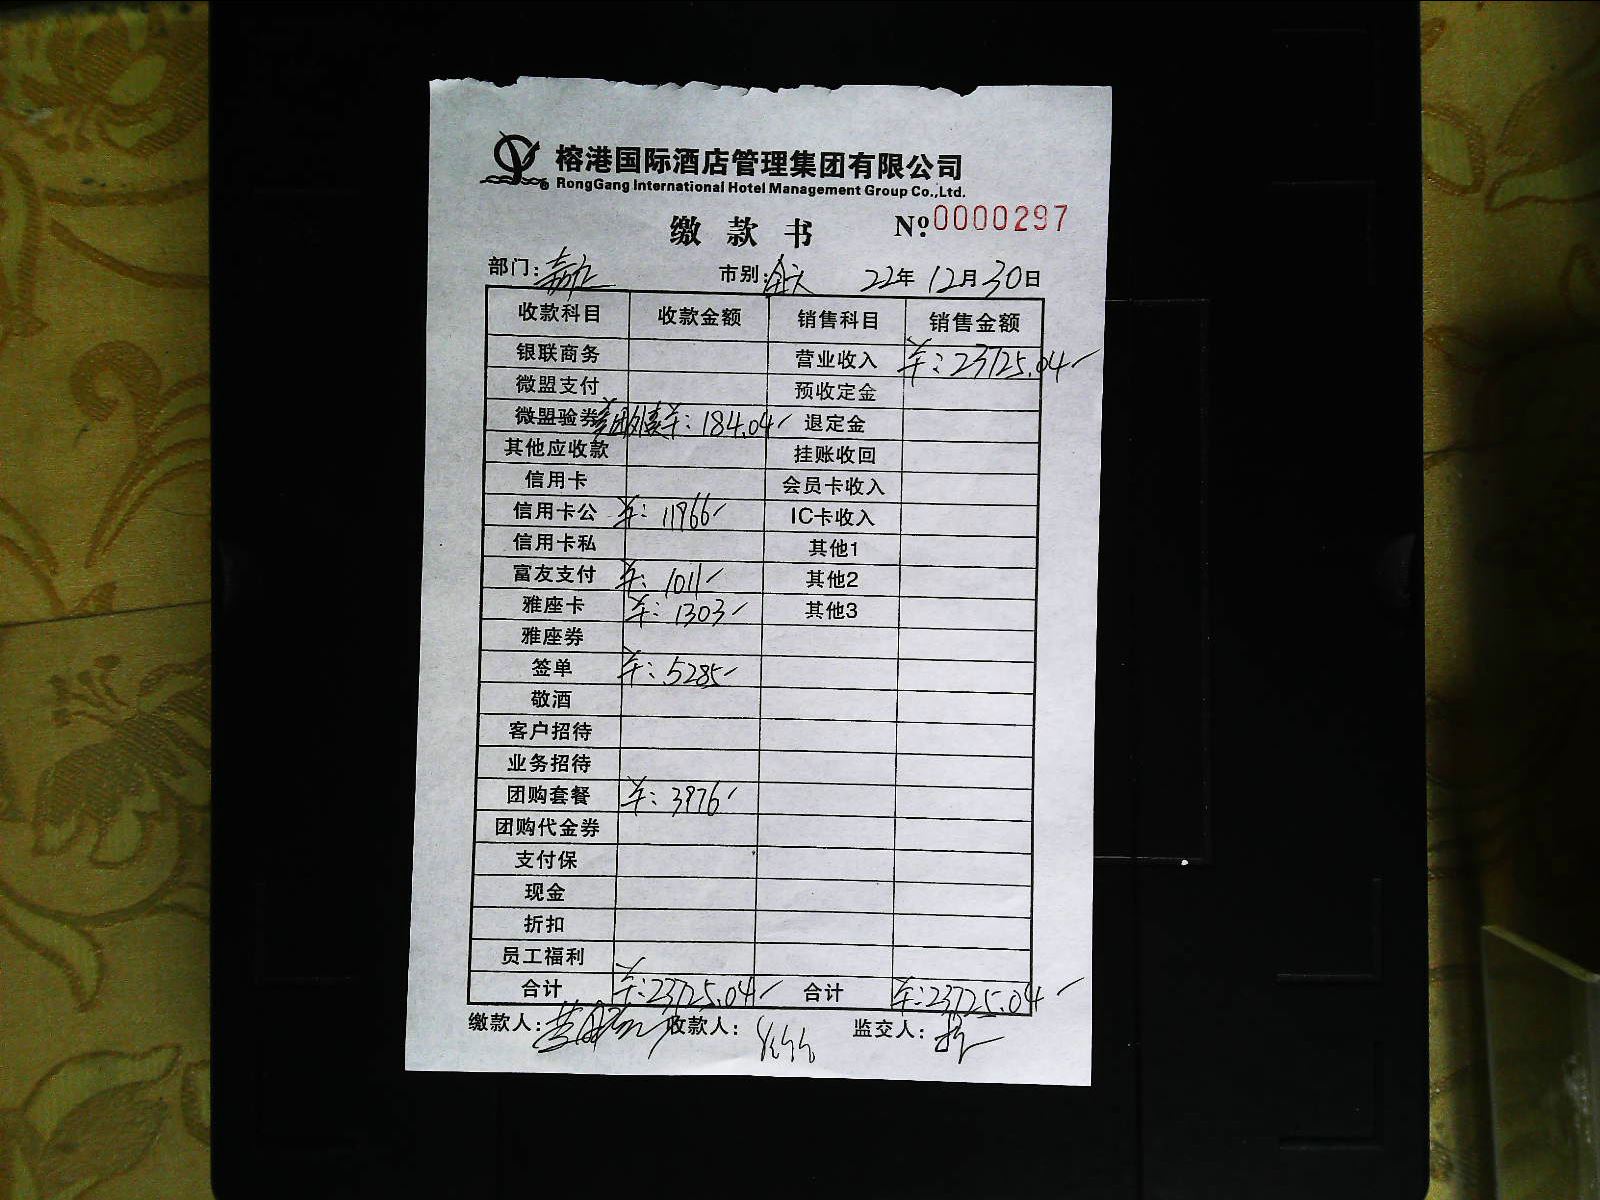 榕港国际酒店管理集团有限公司
RongGang International Hotel Management Group Co.,Ltd.
缴款书 Nº:0000297
部门: 市别:全天 22年12月30日
收款科目 收款金额 销售科目 销售金额
银联商务 营业收入 羊:23725.04
微盟支付 预收定金
微盟验券 美团外卖 羊:184.04 退定金
其他应收款 挂账收回
信用卡 会员卡收入
信用卡公 羊:11966 IC卡收入
信用卡私 其他1
富友支付 羊:1011 其他2
雅座卡 羊:1303 其他3
雅座券
签单 羊:5285
敬酒
客户招待
业务招待
团购套餐 羊:3976
团购代金券
支付保
现金
折扣
员工福利
合计 羊:23725.04 合计 羊:23725.04
缴款人: 收款人: 监交人: